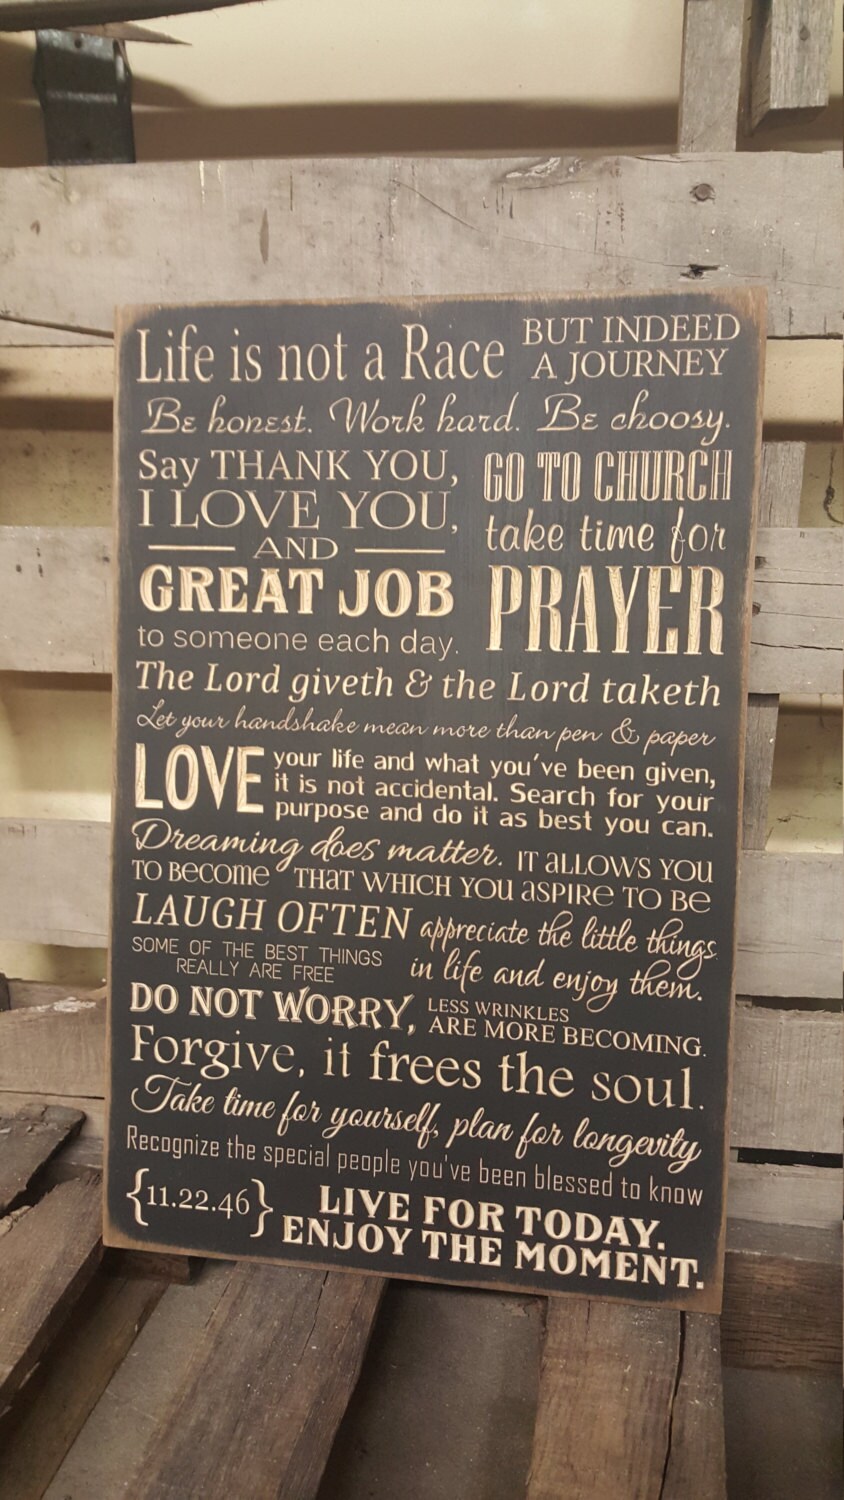 Life is not a Race BUT INDEED
A JOURNEY
Be honest. Work hard. Be choosy.
Say THANK YOU,
I LOVE YOU,
AND
GREAT JOB
to someone each day.
GO TO CHURCH
take time for
PRAYER
The Lord giveth & the Lord taketh
Let your handshake mean more than pen & paper
LOVE your life and what you've been given,
it is not accidental. Search for your
purpose and do it as best you can.
Dreaming does matter. IT aLLOWS YOU
TO Become THaT WHICH YOU aSPIRe TO Be
LAUGH OFTEN appreciate the little things
in life and enjoy them.
SOME OF THE BEST THINGS
REALLY ARE FREE
DO NOT WORRY, LESS WRINKLES
ARE MORE BECOMING.
Forgive, it frees the soul.
Take time for yourself, plan for longevity
Recognize the special people you've been blessed to know
{11.22.46} LIVE FOR TODAY.
ENJOY THE MOMENT.